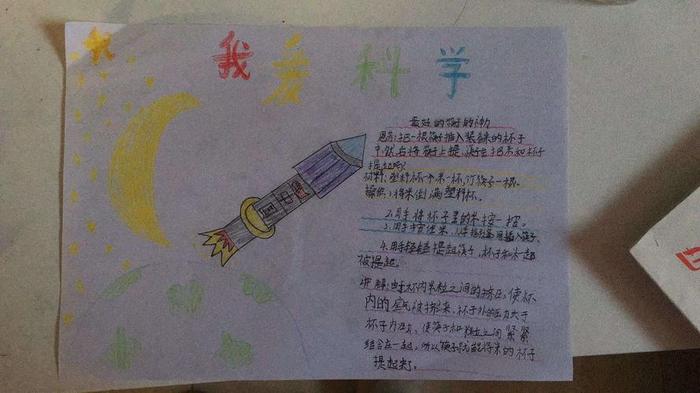 我爱科学
中国
思考:把一根筷子插入装米的杯子
中,然后将筷子上提,筷子会把米和杯子
提起吗?
材料:塑料杯一个米一杯,竹筷子一根。
操作:1、将米倒满塑料杯。
2.用手将杯子里的米按一按。
3.用手按住米,从手指缝间插入筷子。
4.用手轻轻提起筷子,杯子和米一起
被提起。
讲解:由于杯内米粒之间的挤压,使杯
内的空气被挤出来,杯子外的压力大于
杯子力压力,使筷子和米粒之间紧紧
结合在一起,所以筷子就能将米的杯子
提起来了。